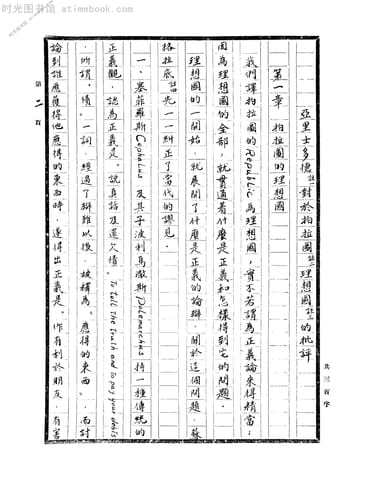 时光图书馆 atimebook.com
亞里士多德註一對於柏拉圖註二理想國註三的批評
第一章　柏拉圖的理想國
我們譯柏拉圖的Republic為理想國，實不若謂為正義論來得精當；
因為理想國的全部，就貫通著什麼是正義和怎樣得到它的問題。
理想國的一開始，就展開了什麼是正義的論辯。關於這個問題，蘇
格拉底註四先一一糾正了當代的謬見。
一、塞菲羅斯 Cephalus 及其子波利馬澈斯 Polemarchus 持一種傳統的
正義觀，認為正義是「說真話及還欠債。To tell the truth and to pay your debts
」所謂「債」一詞，經過了辯難以後，被釋為「應得的東西」。而討
論到誰應獲得他應得的東西時，遂得出正義是「作有利於朋友，有害
第二頁
共三百字
时光图书馆 atimebook.com